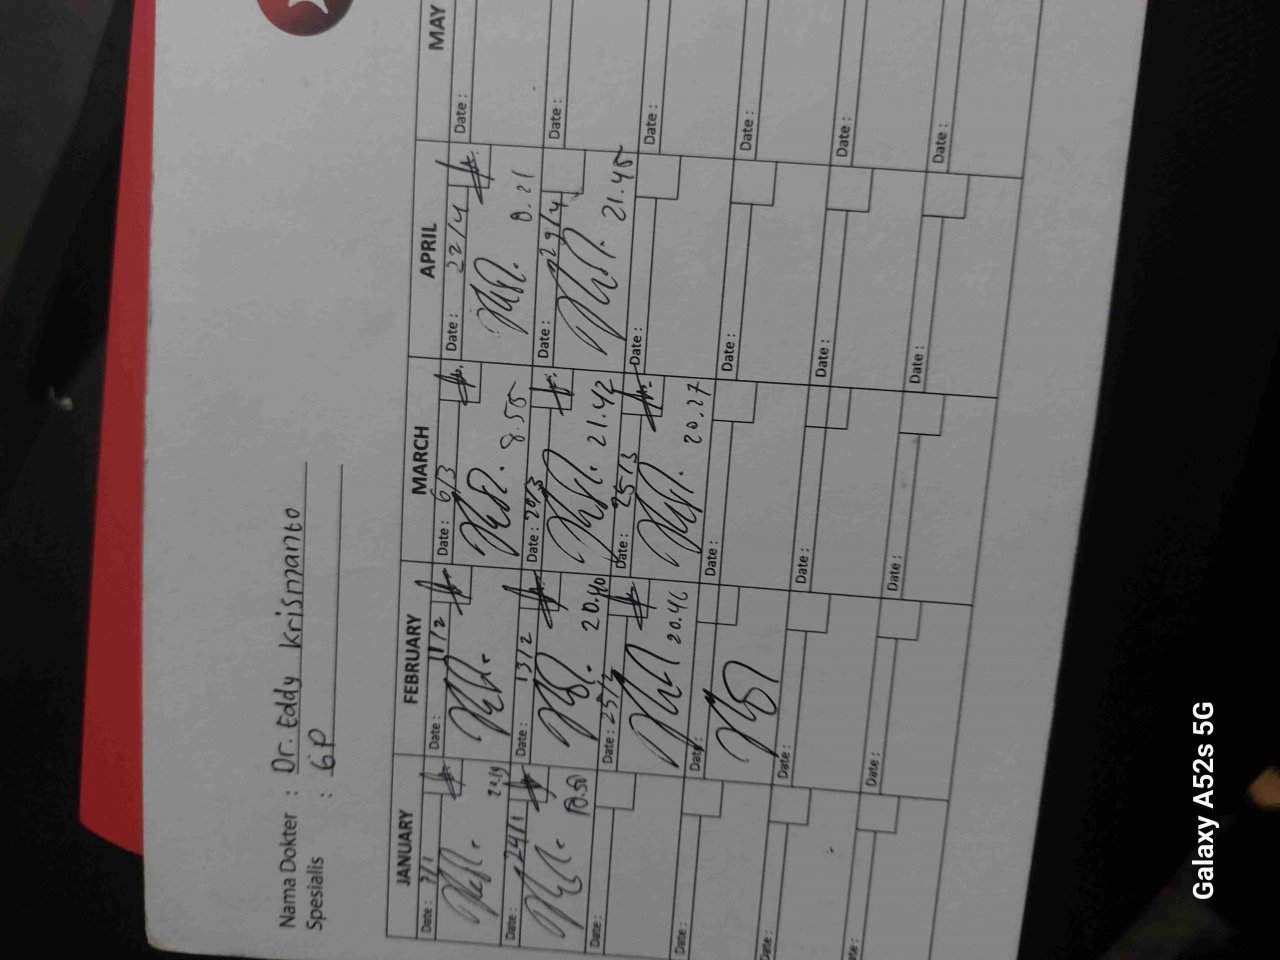 Nama Dokter : Dr. Eddy Krismanto
Spesialis : GP
JANUARY FEBRUARY MARCH APRIL MAY
Date : 7/1 Date : 11/2 Date : 6/3 Date : 22/4 Date :
8.55 8.21
Date : 24/1 Date : 13/2 Date : 20/3 Date : 29/4 Date :
18.50 20.40 21.42 21.45
Date : Date : 25/2 Date : 25/3 Date : Date :
20.46 20.27
Date : Date : Date : Date : Date :
Date : Date : Date : Date : Date :
Date : Date : Date : Date : Date :
Galaxy A52s 5G